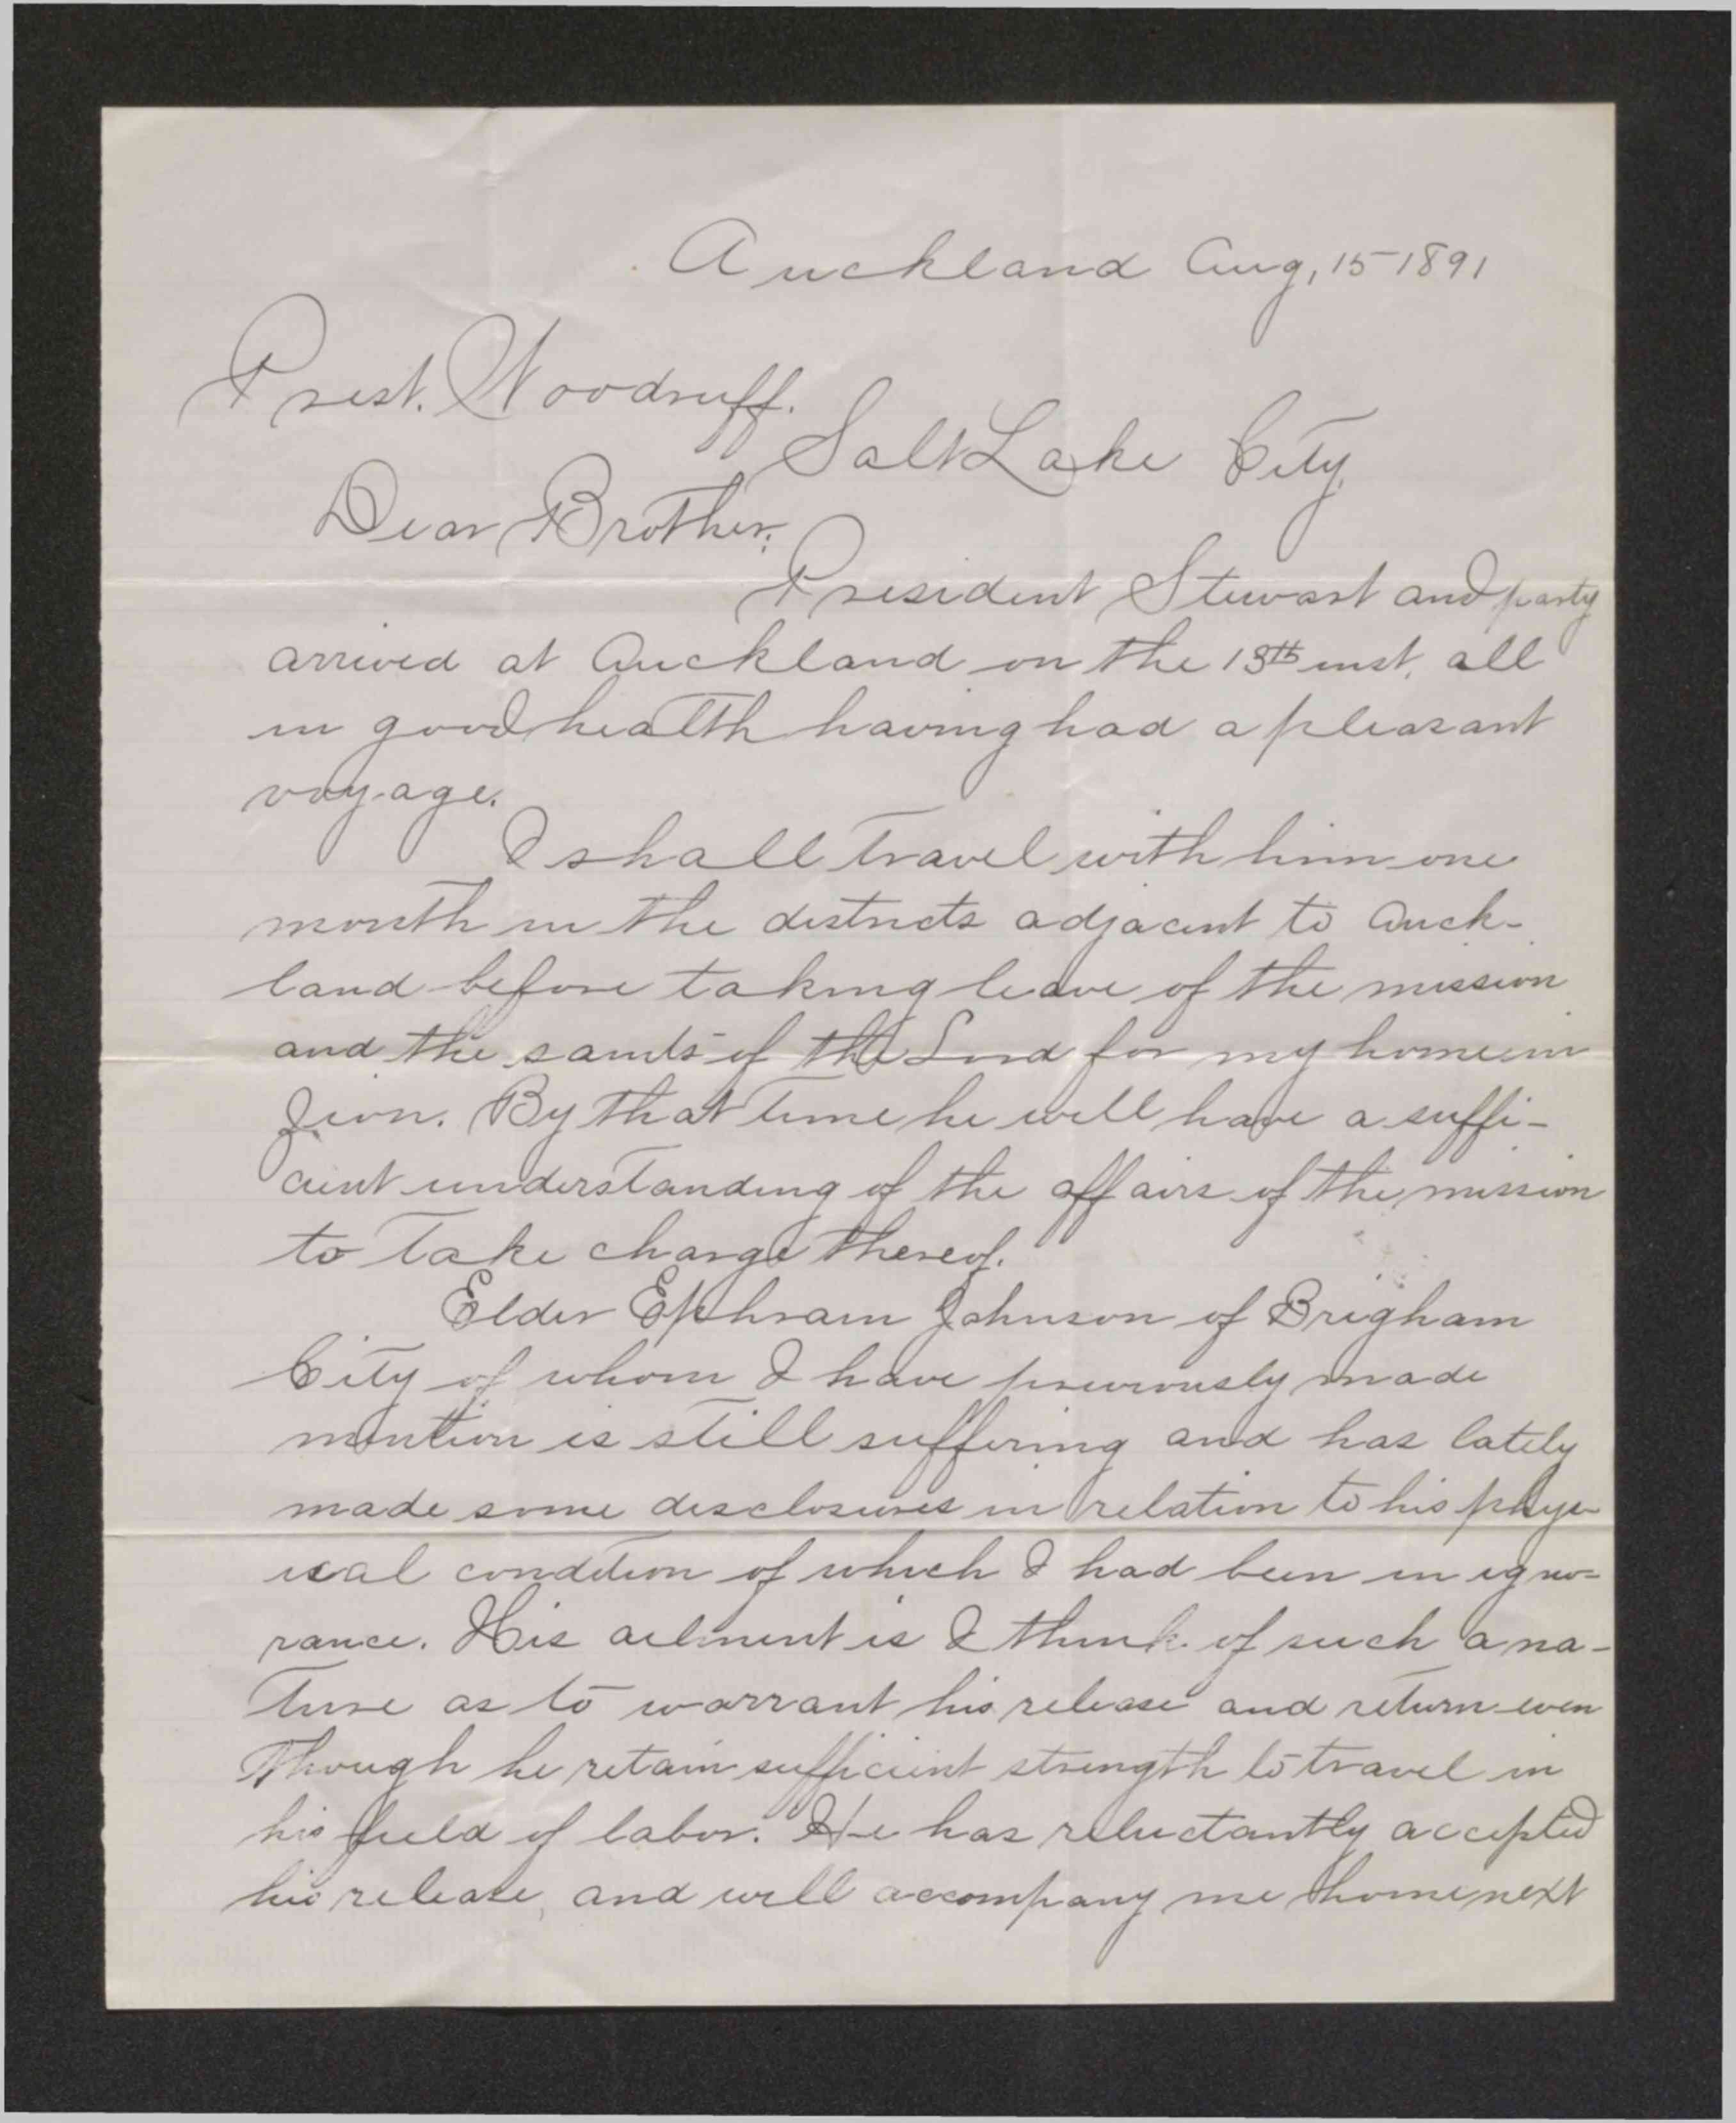 Auckland Aug, 15 1891
Prest. Woodruff.
Salt Lake City.
Dear Brother;
President Stewart and party
arrived at Auckland on the 13th inst, all
in good health having had a pleasant
voyage.
I shall travel with him one
month in the districts adjacent to Auck-
land before taking leave of the mission
and the saints of the Lord for my home in
Zion. By that time he will have a suffi-
cient understanding of the affairs of the mission
to take charge thereof.
Elder Ephraim Johnson of Brigham
City of whom I have previously made
mention is still suffering and has lately
made some disclosures in relation to his phys-
ical condition of which I had been in igno-
rance. His ailment is I think of such a na-
ture as to warrant his release and return even
though he retain sufficient strength to travel in
his field of labor. He has reluctantly accepted
his release, and will accompany me home next